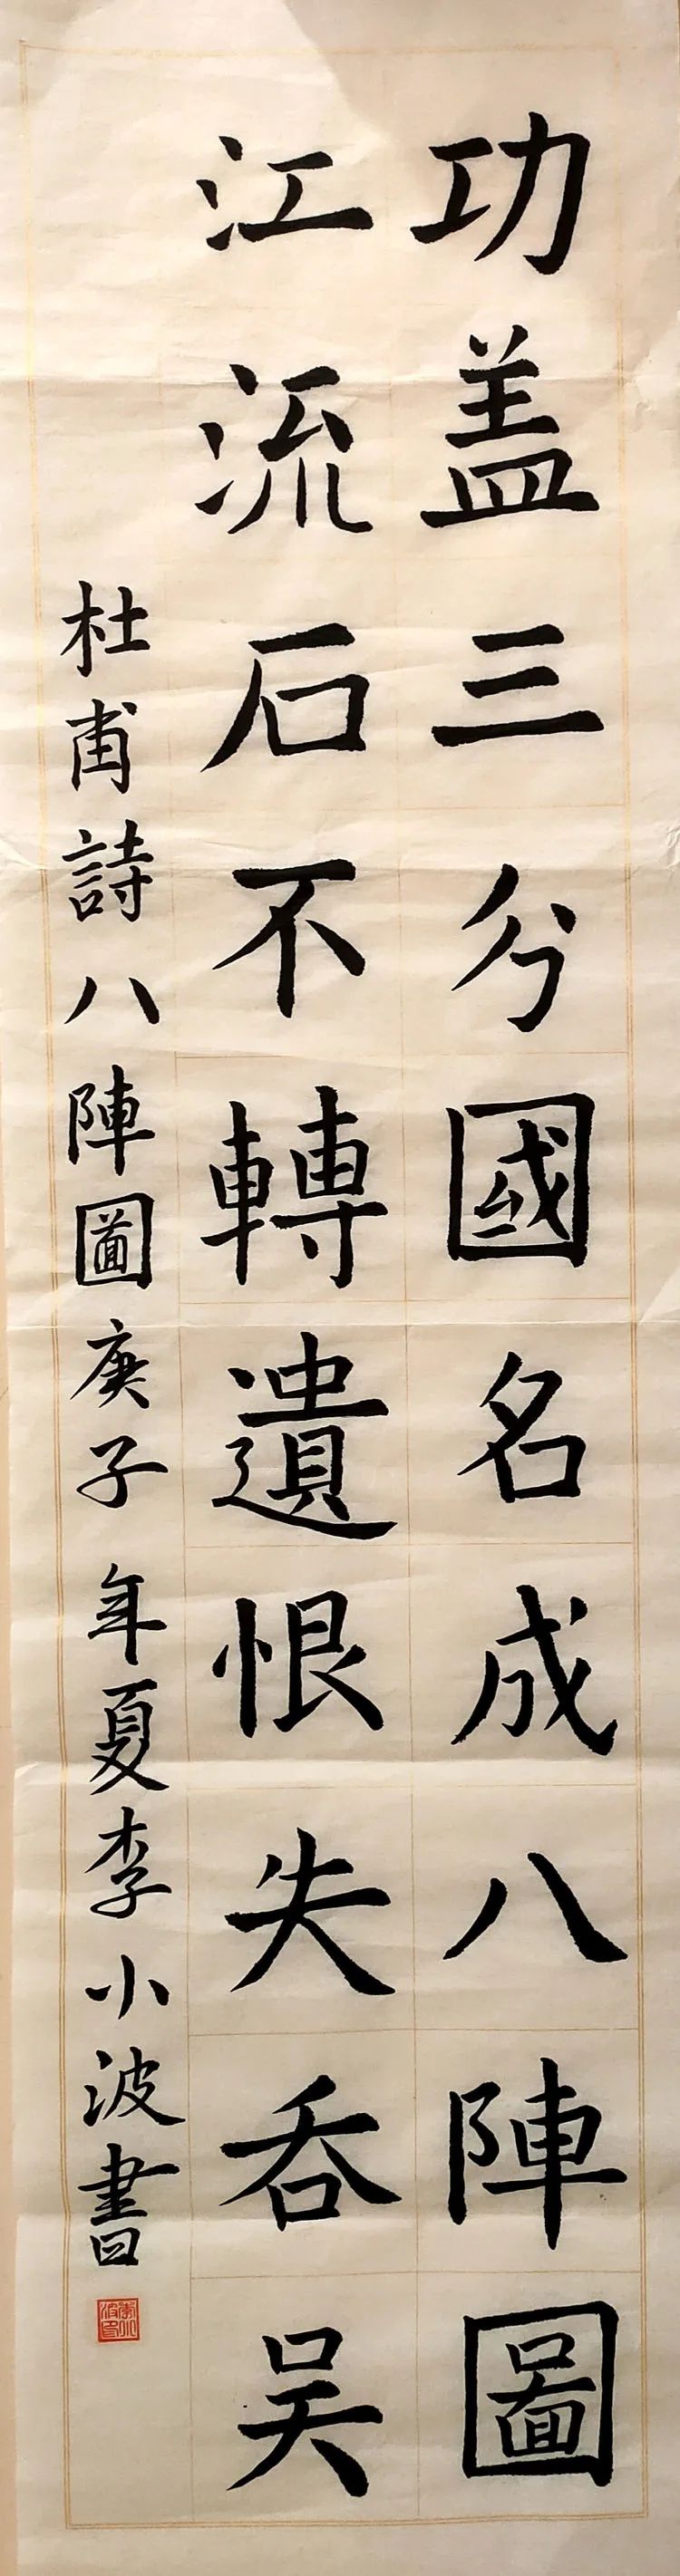 功盖三分國名成八陣圖
江流石不轉遺恨失吞吴
杜甫詩八陣圖庚子年夏李小波書